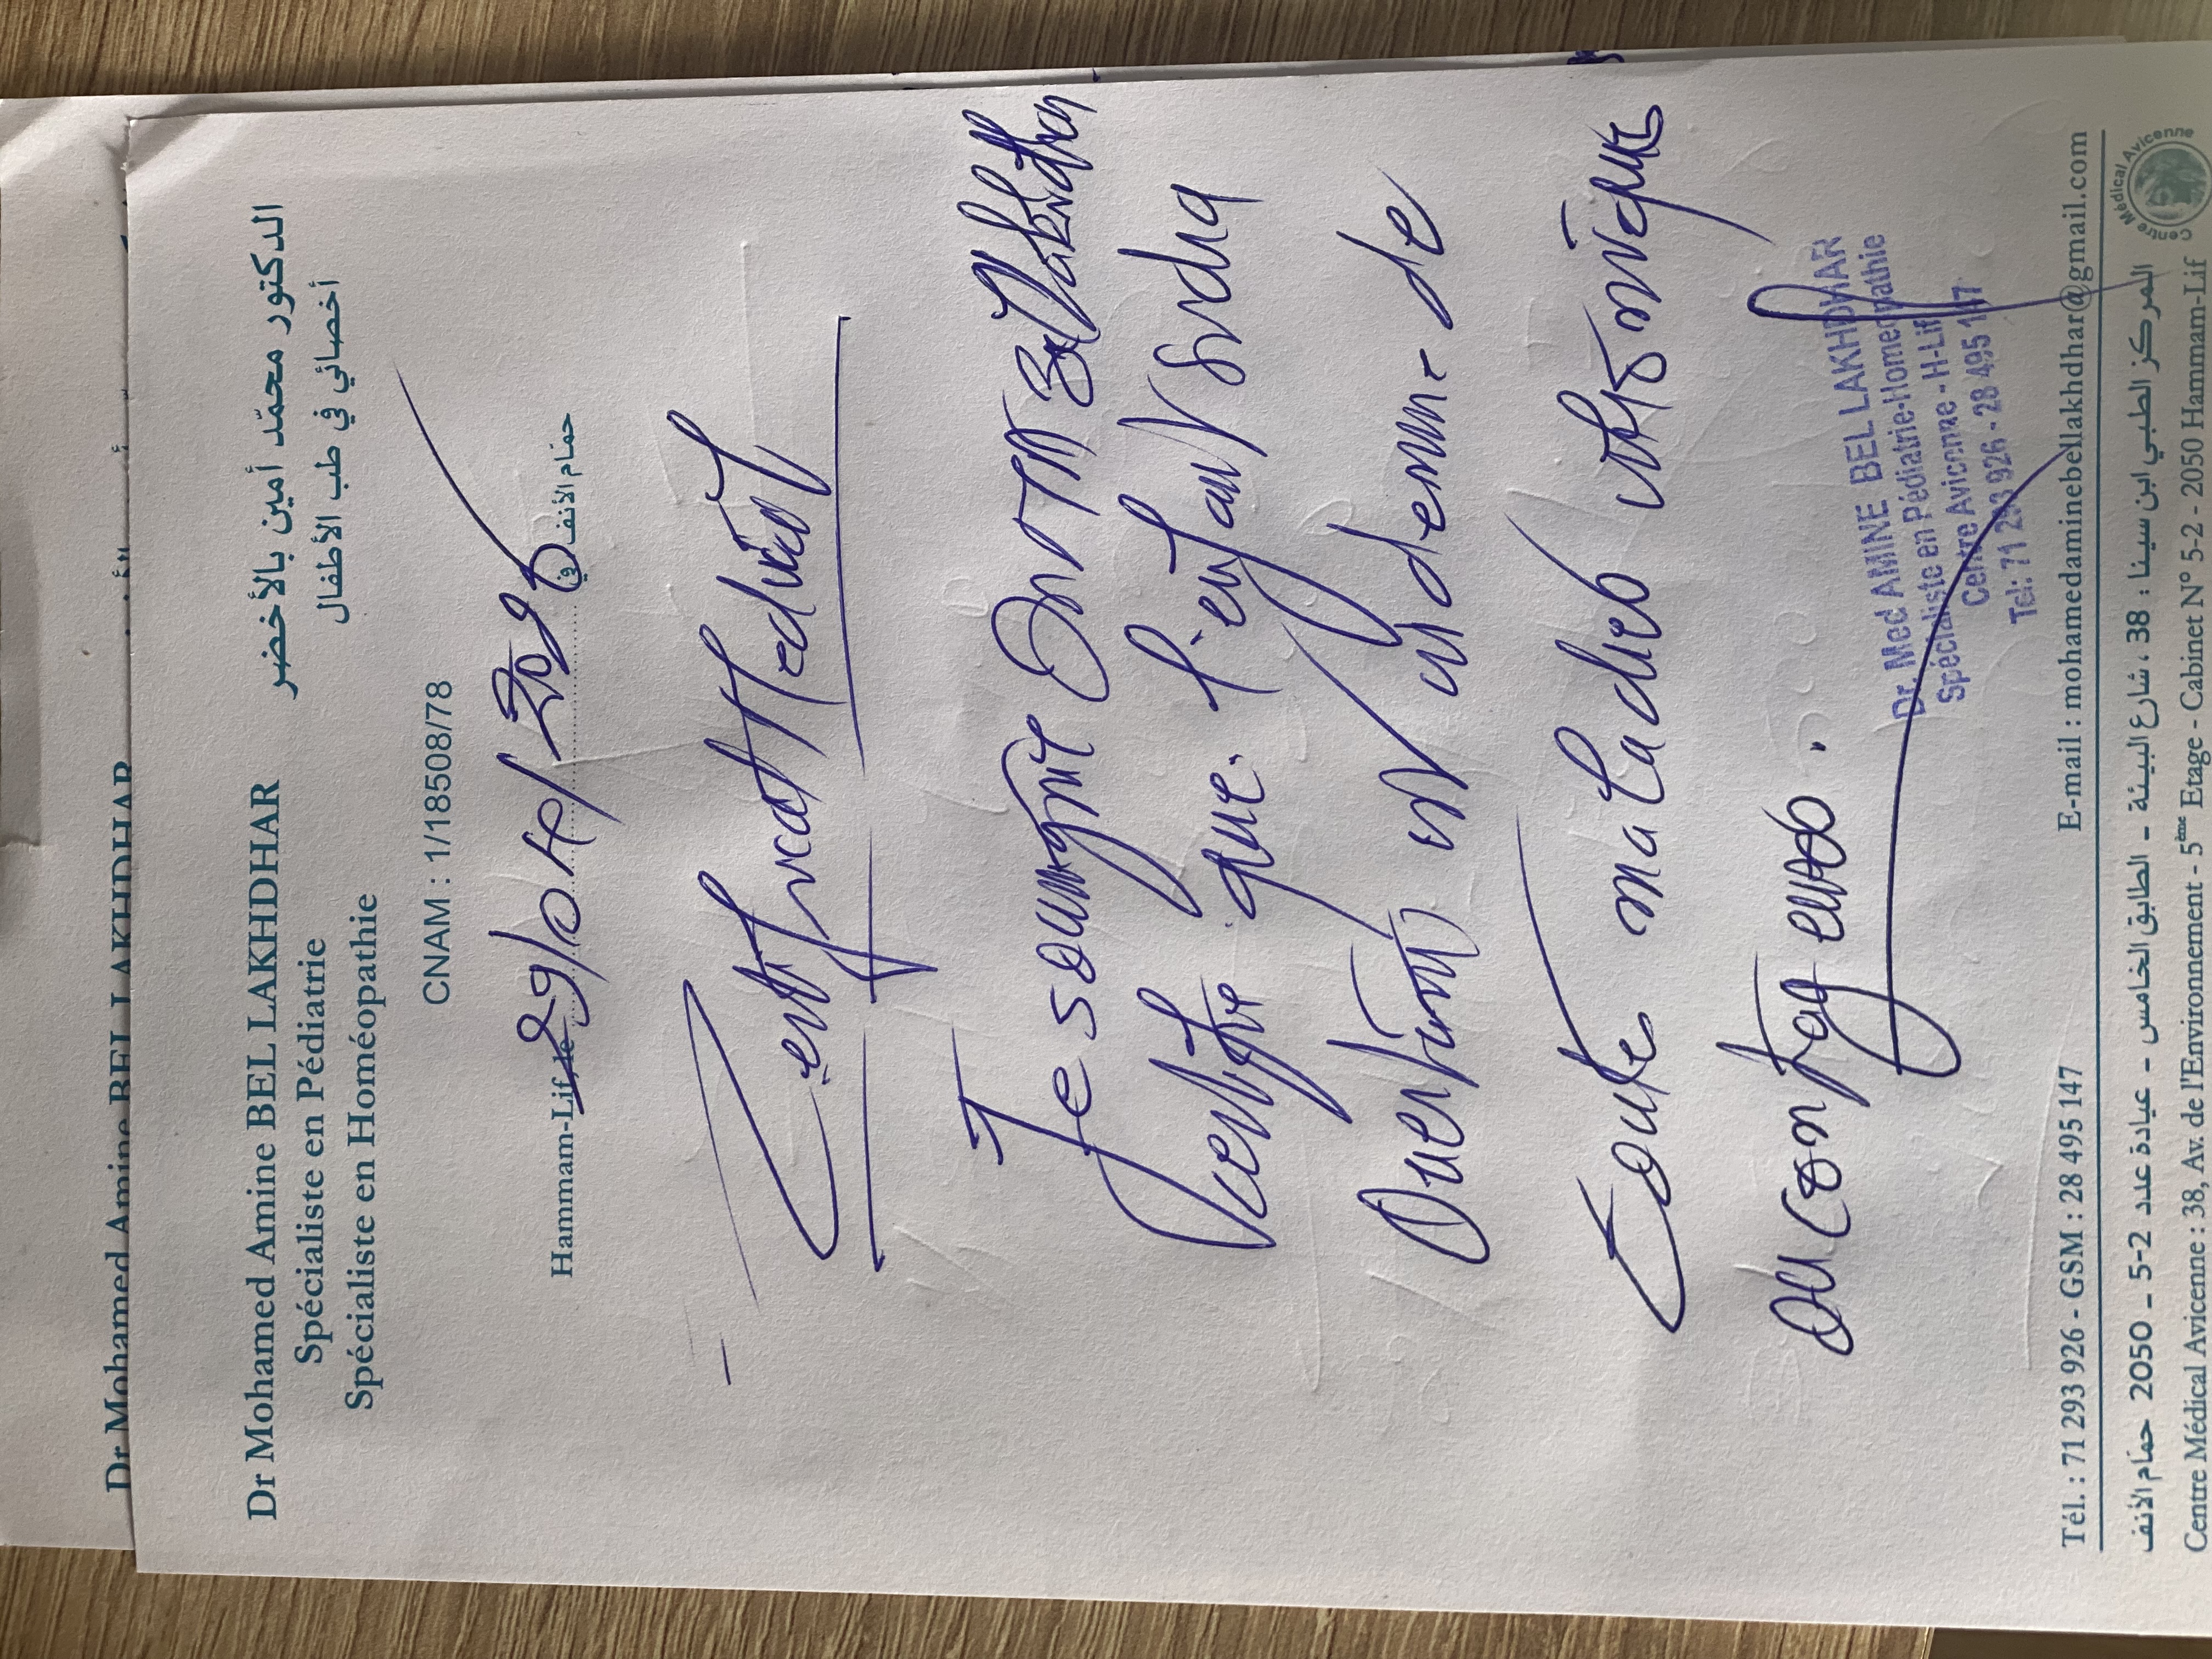 Dr Mohamed Amine BEL LAKHDHAR
Dr Mohamed Amine BEL LAKHDHAR
Spécialiste en Pédiatrie
Spécialiste en Homéopathie
الدكتور محمّد أمين بالأخضر
أخصائي في طب الأطفال
CNAM : 1/18508/78
Hammam-Lif, le 29/04/ حمّام الأنف في
Certificat Medical
Je soussigné Dr M A Bel Lakhdhar
certifie que l'enfant
est indemne de
toute maladie chronique
ou contagieuse.
Dr. Med AMINE BEL LAKHDHAR
Spécialiste en Pédiatrie-Homéopathie
Centre Avicenne - H-Lif
Tél: 71 293 926 - 28 495 147
Tél. : 71 293 926 - GSM : 28 495 147 E-mail : mohamedaminebellakhdhar@gmail.com
المركز الطبي ابن سينا : 38 ، شارع البيئة - الطابق الخامس - عيادة عدد 2-5 - 2050 حمّام الأنف
Centre Médical Avicenne : 38, Av. de l'Environnement - 5ème Etage - Cabinet N° 5-2 - 2050 Hammam-Lif
Centre Médical Avicenne